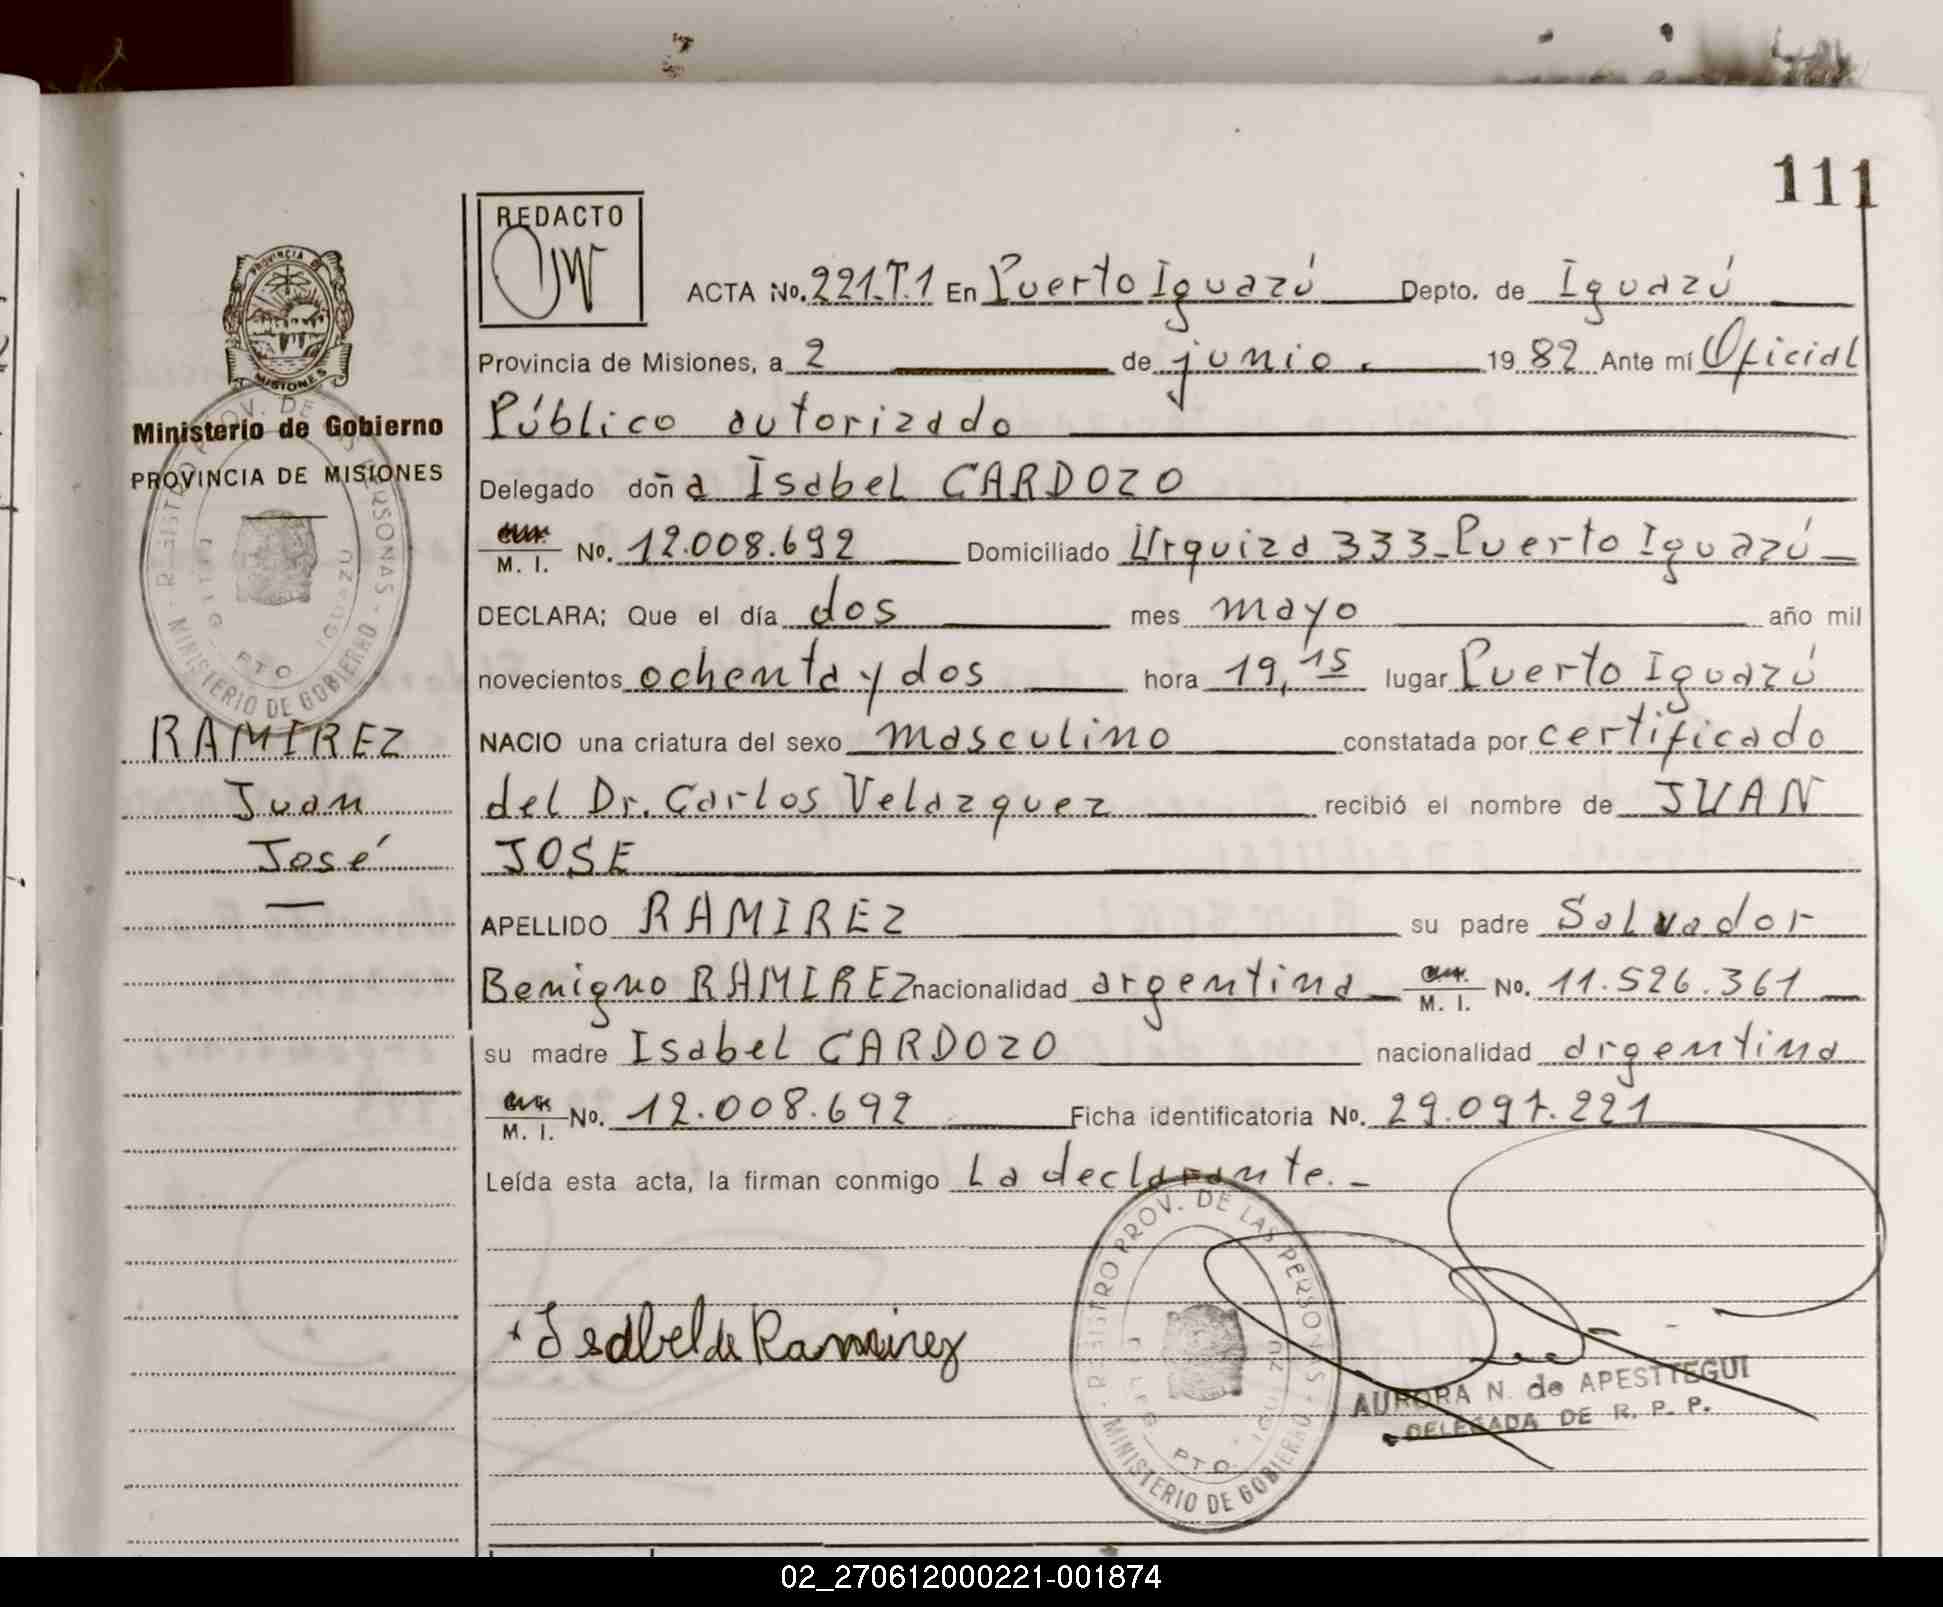 111
REDACTO
ACTA No. 221.T.1 En Puerto Iguazú Depto. de Iguazú
Provincia de Misiones, a 2 de junio. 1982 Ante mí Oficial
Público autorizado
Delegado doña Isabel CARDOZO
M. I. No. 12.008.692 Domiciliado Urquiza 333-Puerto Iguazú
DECLARA; Que el día dos mes mayo año mil
novecientos ochenta y dos hora 19,15 lugar Puerto Iguazú
NACIO una criatura del sexo masculino constatada por certificado
del Dr. Carlos Velazquez recibió el nombre de JUAN
JOSE
APELLIDO RAMIREZ su padre Salvador
Benigno RAMIREZ nacionalidad argentina M. I. No. 11.526.361
su madre Isabel CARDOZO nacionalidad argentina
M. I. No. 12.008.692 Ficha identificatoria No. 29.097.221
Leída esta acta, la firman conmigo La declarante.-
Isabel de Ramirez
AURORA N. de APESTTEGUI
DELEGADA DE R. P. P.
REGISTRO PROV. DE LAS PERSONAS - MINISTERIO DE GOBIERNO
PTO. IGUAZU
PROVINCIA DE
MISIONES
Ministerio de Gobierno
PROVINCIA DE MISIONES
REGISTRO PROV. DE LAS PERSONAS - MINISTERIO DE GOBIERNO
PTO. IGUAZU
RAMIREZ
Juan
José
02_270612000221-001874